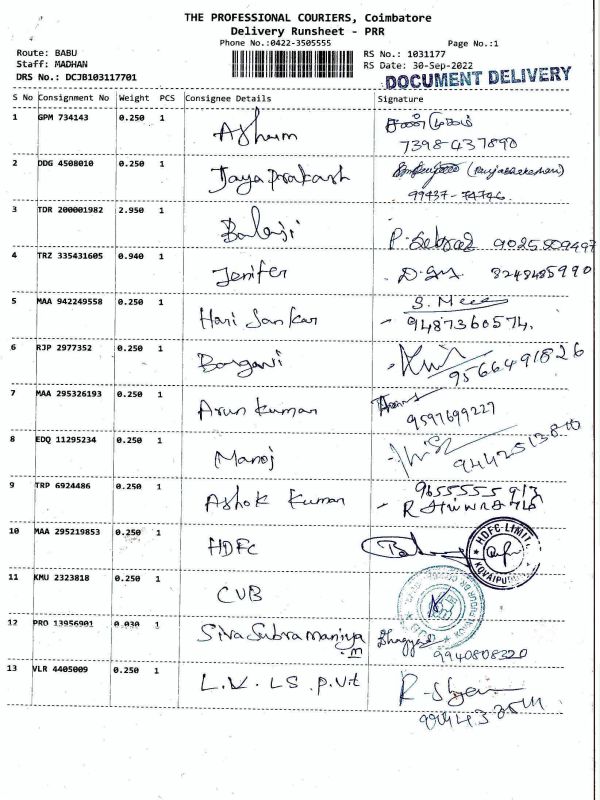 THE PROFESSIONAL COURIERS, Coimbatore
Delivery Runsheet - PRR
Phone No.:0422-3505555
Page No.:1
Route: BABU
RS No.: 1031177
Staff: MADHAN
RS Date: 30-Sep-2022
DRS No.: DCJB103117701
DOCUMENT DELIVERY
S No Consignment No Weight PCS Consignee Details Signature
1 GPM 734143 0.250 1
7398-437890
2 DDG 4508010 0.250 1 Jaya prakash
99437-74746
3 TDR 200001982 2.950 1 Balaji
4 TRZ 335431605 0.940 1 Jenifer
5 MAA 942249558 0.250 1 Hari Sankar
9487360574.
6 RJP 2977352 0.250 1
9566491826
7 MAA 295326193 0.250 1 Arun kumar
9597699227
8 EDQ 11295234 0.250 1 Manoj
9 TRP 6924486 0.250 1 Ashok Kumar
9655555 913
10 MAA 295219853 0.250 1 HDFC
HDFC-LIMIT
11 KMU 2323818 0.250 1 CUB
12 PRO 13956901 0.030 1 Siva Subramaniya
.m
9940808320
13 VLR 4405009 0.250 1 L.V. LS .p.vt